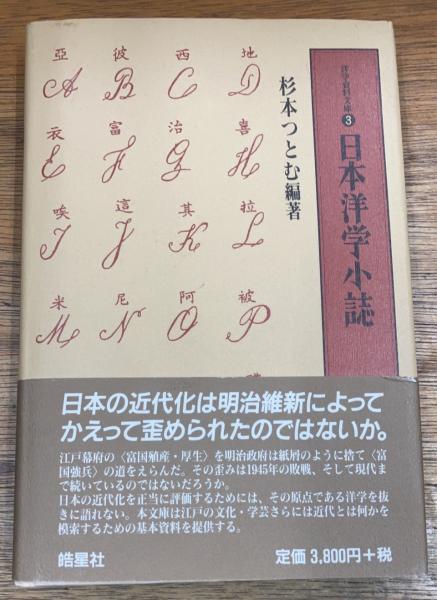 洋学資料文庫❸
日本洋学小誌
杉本つとむ編著
亞 彼 西 地
A B C D
衣 富 治 喜
E F G H
唉 這 其 拉
I J K L
米 尼 阿 被
M N O P
日本の近代化は明治維新によって
かえって歪められたのではないか。
江戸幕府の〈富国殖産・厚生〉を明治政府は紙屑のように捨て〈富
国強兵〉の道をえらんだ。その歪みは1945年の敗戦、そして現代ま
で続いているのではないだろうか。
日本の近代化を正当に評価するためには、その原点である洋学を抜
きに語れない。本文庫は江戸の文化・学芸さらには近代とは何かを
模索するための基本資料を提供する。
皓星社
定価 3,800円+税